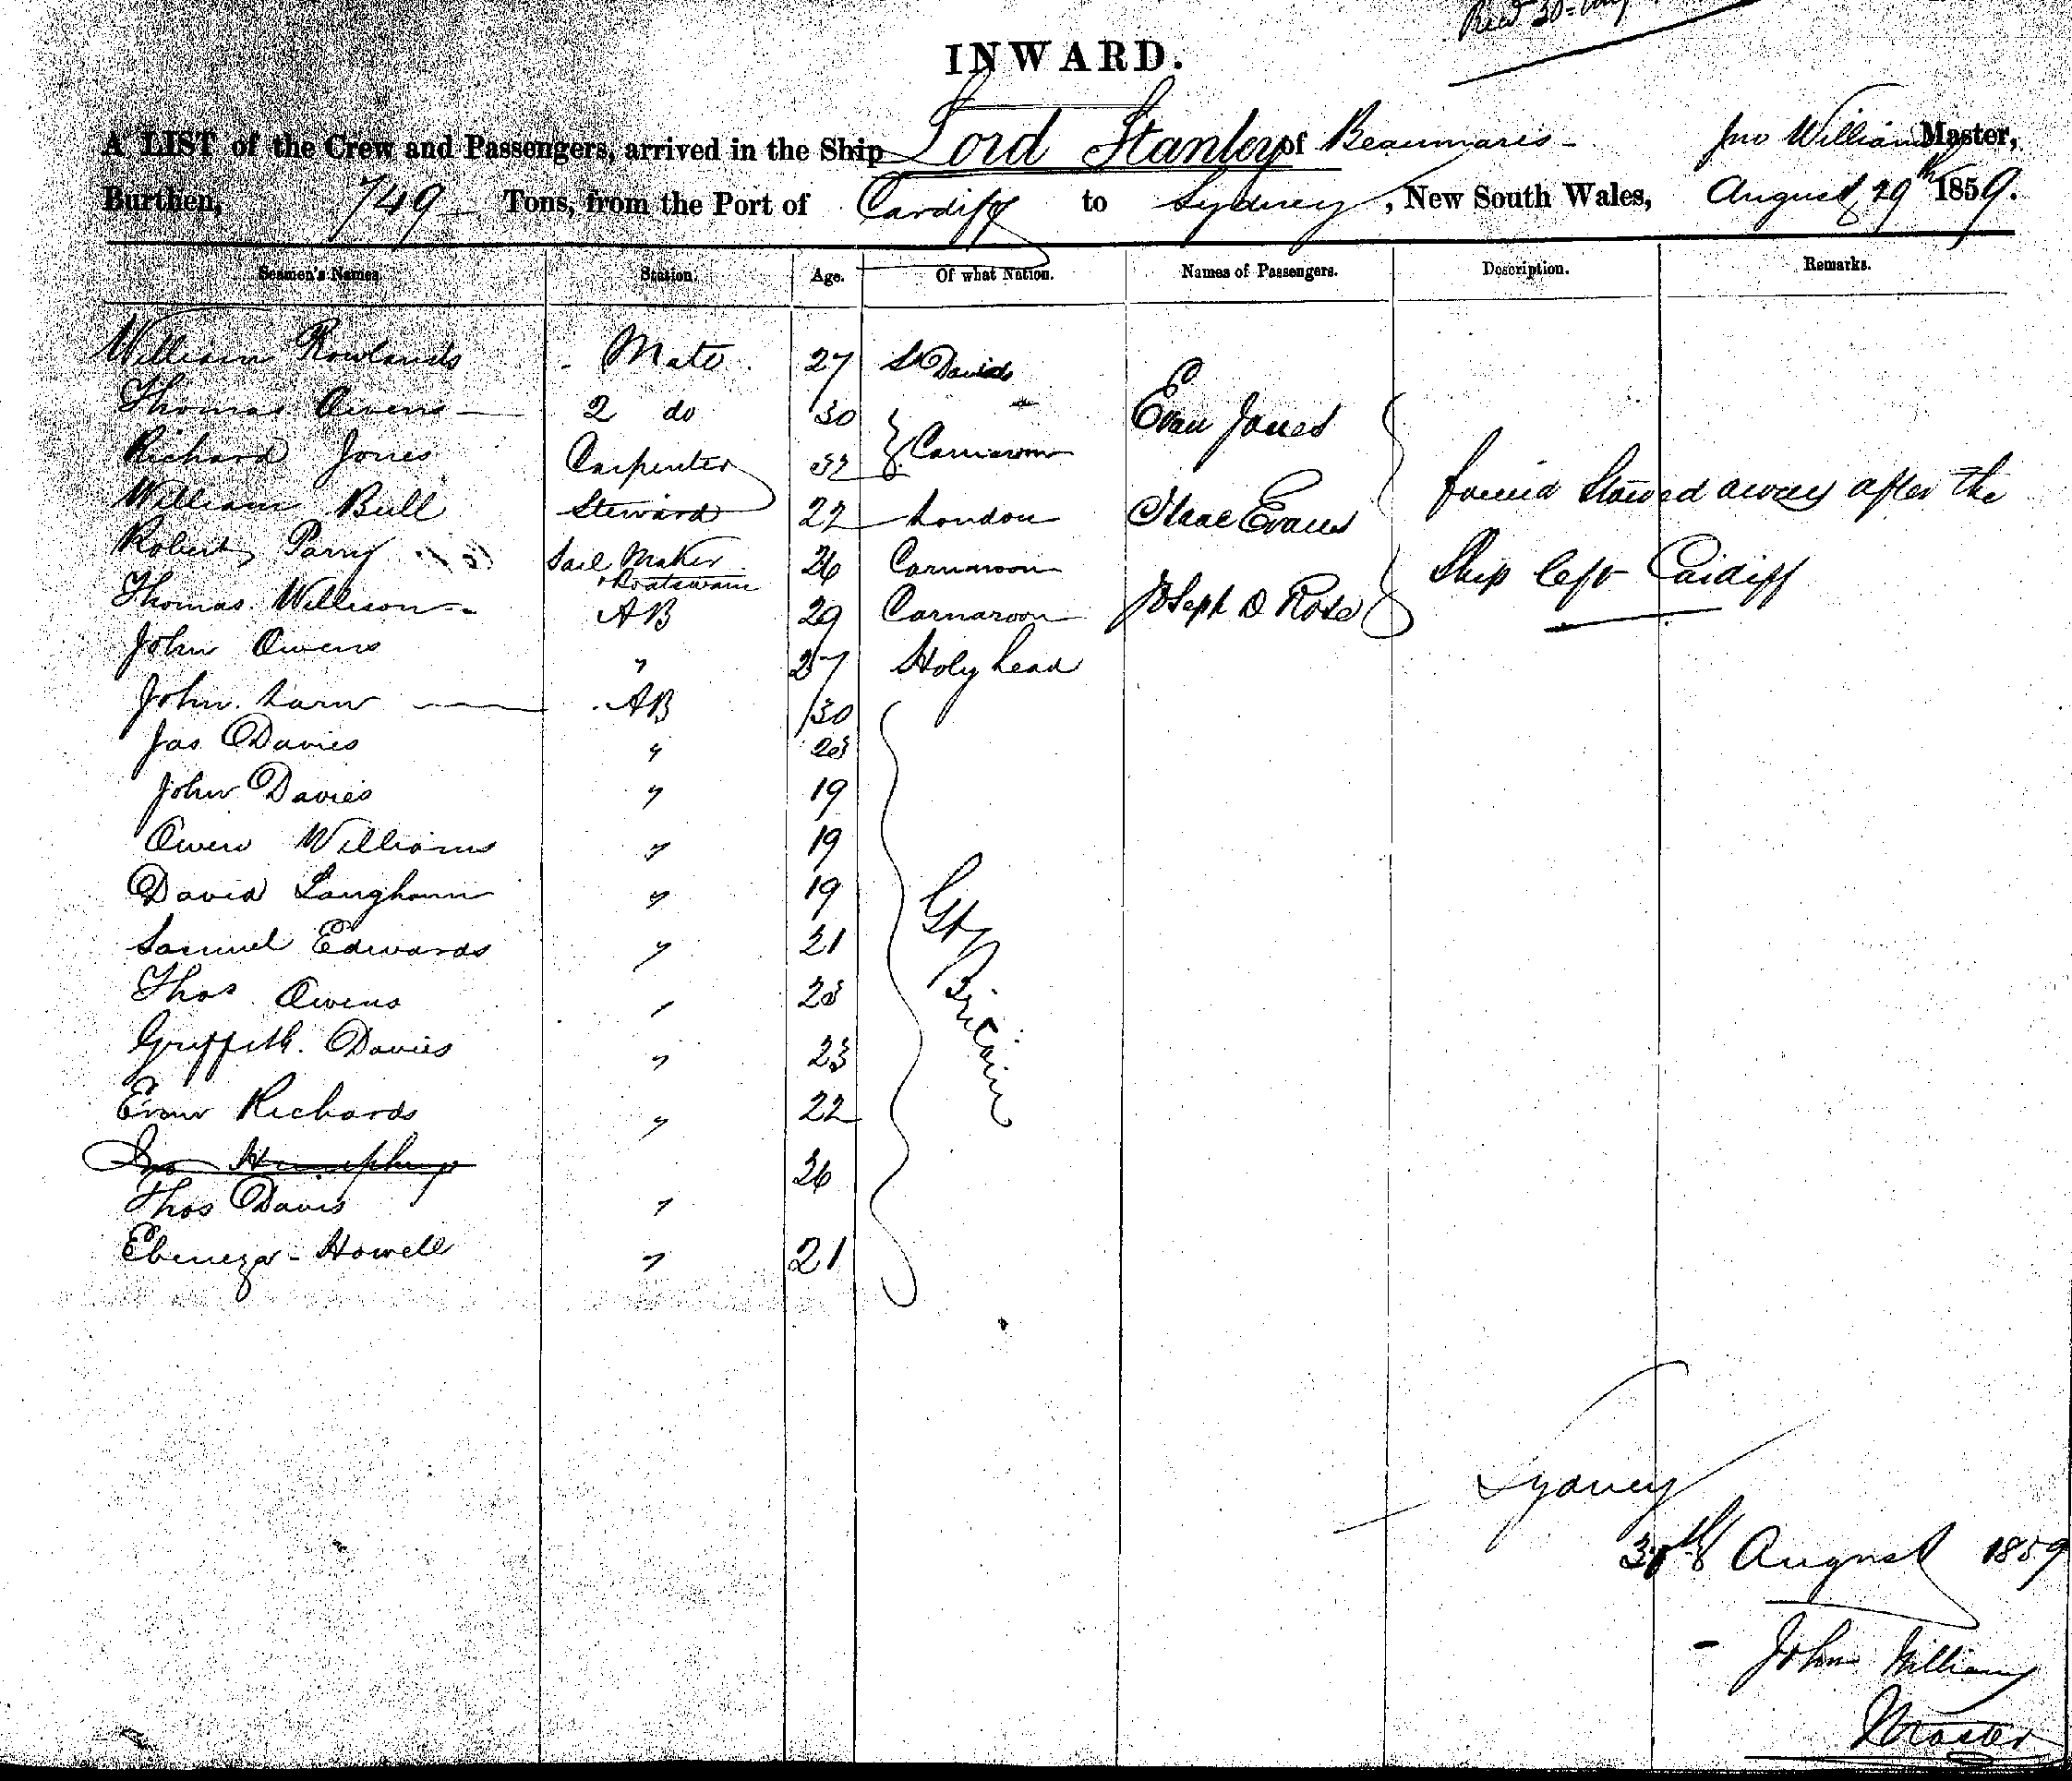 Recd 30
INWARD.
A LIST of the Crew and Passengers, arrived in the Ship Lord Stanley of Beaumaris Jno Williams Master,
Burthen, 749 Tons, from the Port of Cardiff to Sydney, New South Wales, August 29th 1859.
Seamen's Names. Station. Age. Of what Nation. Names of Passengers. Description. Remarks.
William Rowlands Mate 27 St Davids
Thomas Owens 2 do 30 Evan Jones
Richard Jones Carpenter 32 Carnarvon
William Bull Steward 22 London Isaac Evans found stowed away after the
Robert Parry Sail Maker 26 Carnarvon Ship left Cardiff
& Boatswain
Thomas AB 29 Carnarvon Joseph D Rose
John Owens " 27 Holyhead
John AB 30
Jas Davies " 23
John Davies " 19
Owen Williams " 19
David Langham " 19
Samuel Edwards " 21 Gt Britain
Thos Owens " 23
Griffith Davies " 23
Evan Richards " 22
Jno Humphreys 26
Thos Davis "
Ebenezer Howell " 21
Sydney
August 1859
John Williams
Master